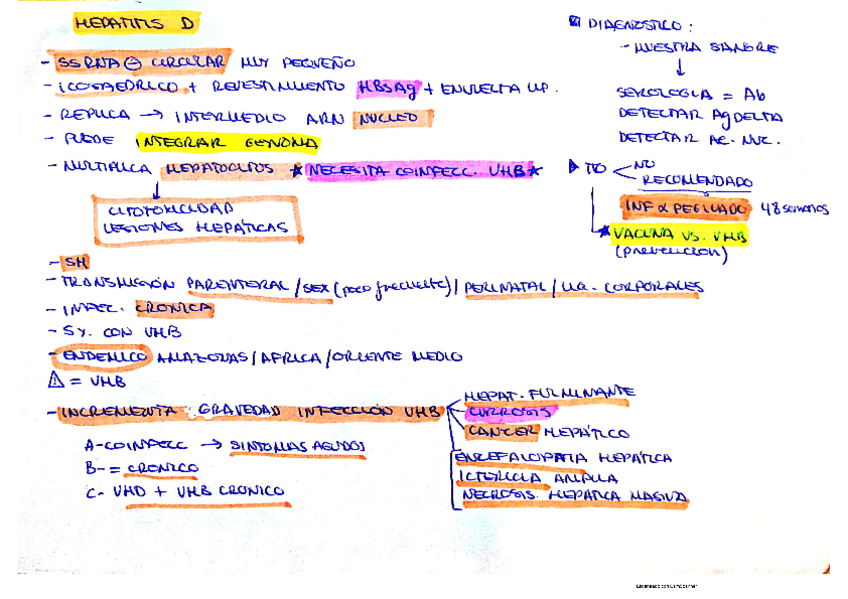 HEPATITIS D
- SS RNA ⊖ CIRCULAR MUY PEQUEÑO
- ICOSAEDRICO + REVESTIMIENTO HBSAg + ENVUELTA LIP.
- REPLICA → INTERMEDIO ARN NUCLEO
- PUEDE INTEGRAR GENOMA
- MULTIPLICA HEPATOCITOS * NECESITA COINFECC. VHB *
↓
CITOTOXICIDAD
LESIONES HEPÁTICAS
- SH
- TRANSMISIÓN PARENTERAL / SEX (poco frecuente) / PERINATAL / LIQ. CORPORALES
- INFEC. CRONICA
- SY. CON VHB
- ENDEMICO AMAZONAS / AFRICA / ORIENTE MEDIO
⚠ = VHB
- INCREMENTA GRAVEDAD INFECCIÓN VHB
HEPAT. FULMINANTE
CIRROSIS
CANCER HEPÁTICO
ENCEFALOPATIA HEPÁTICA
ICTERICIA AMPLIA
NECROSIS HEPÁTICA MASIVA
A- COINFECC → SINTOMAS AGUDOS
B- = CRONICO
C- VHD + VHB CRONICO
DIAGNOSTICO:
- MUESTRA SANGRE
↓
SEROLOGIA = Ab
DETECTAR Ag DELTA
DETECTAR AC. NUC.
▶ TTO < NO
RECOMENDADO
INF α PEGILADO 48 semanas
* VACUNA VS. VHB
(prevención)